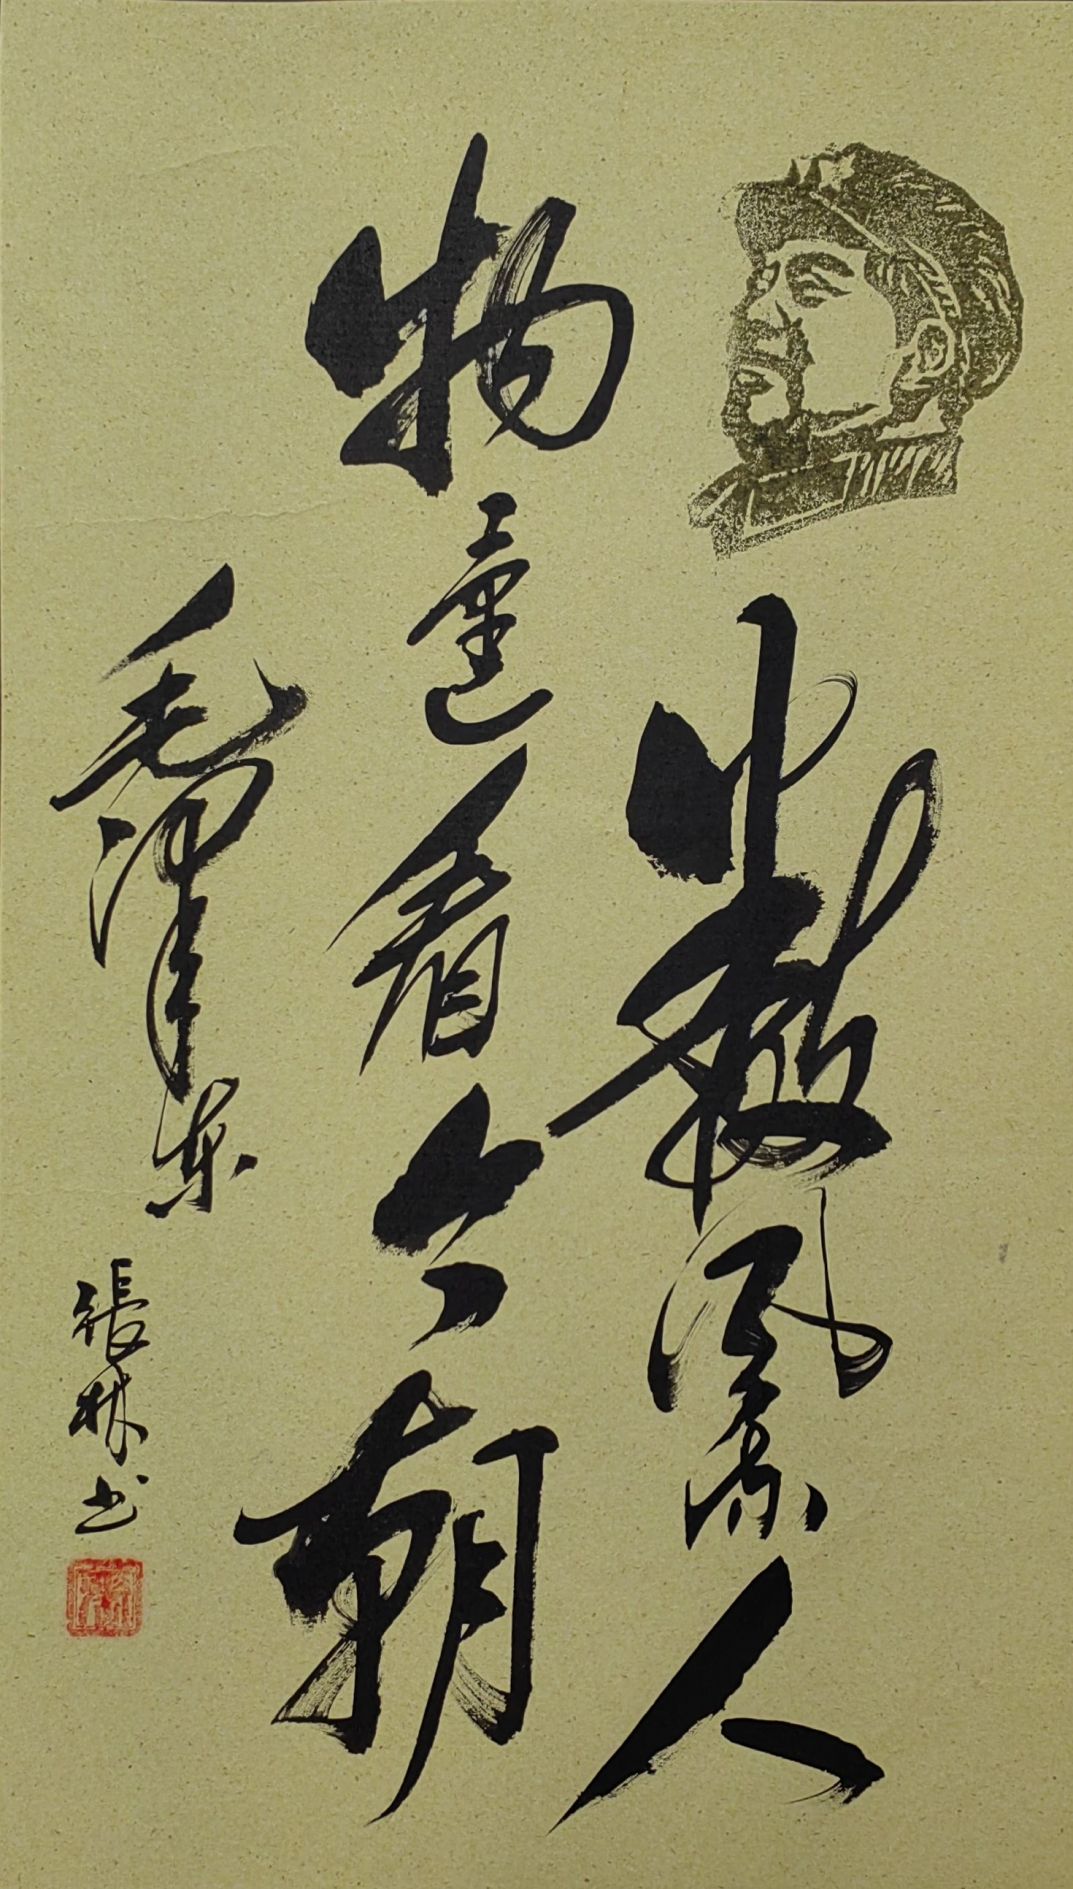 数风流人
物還看今朝
毛泽东
張林书